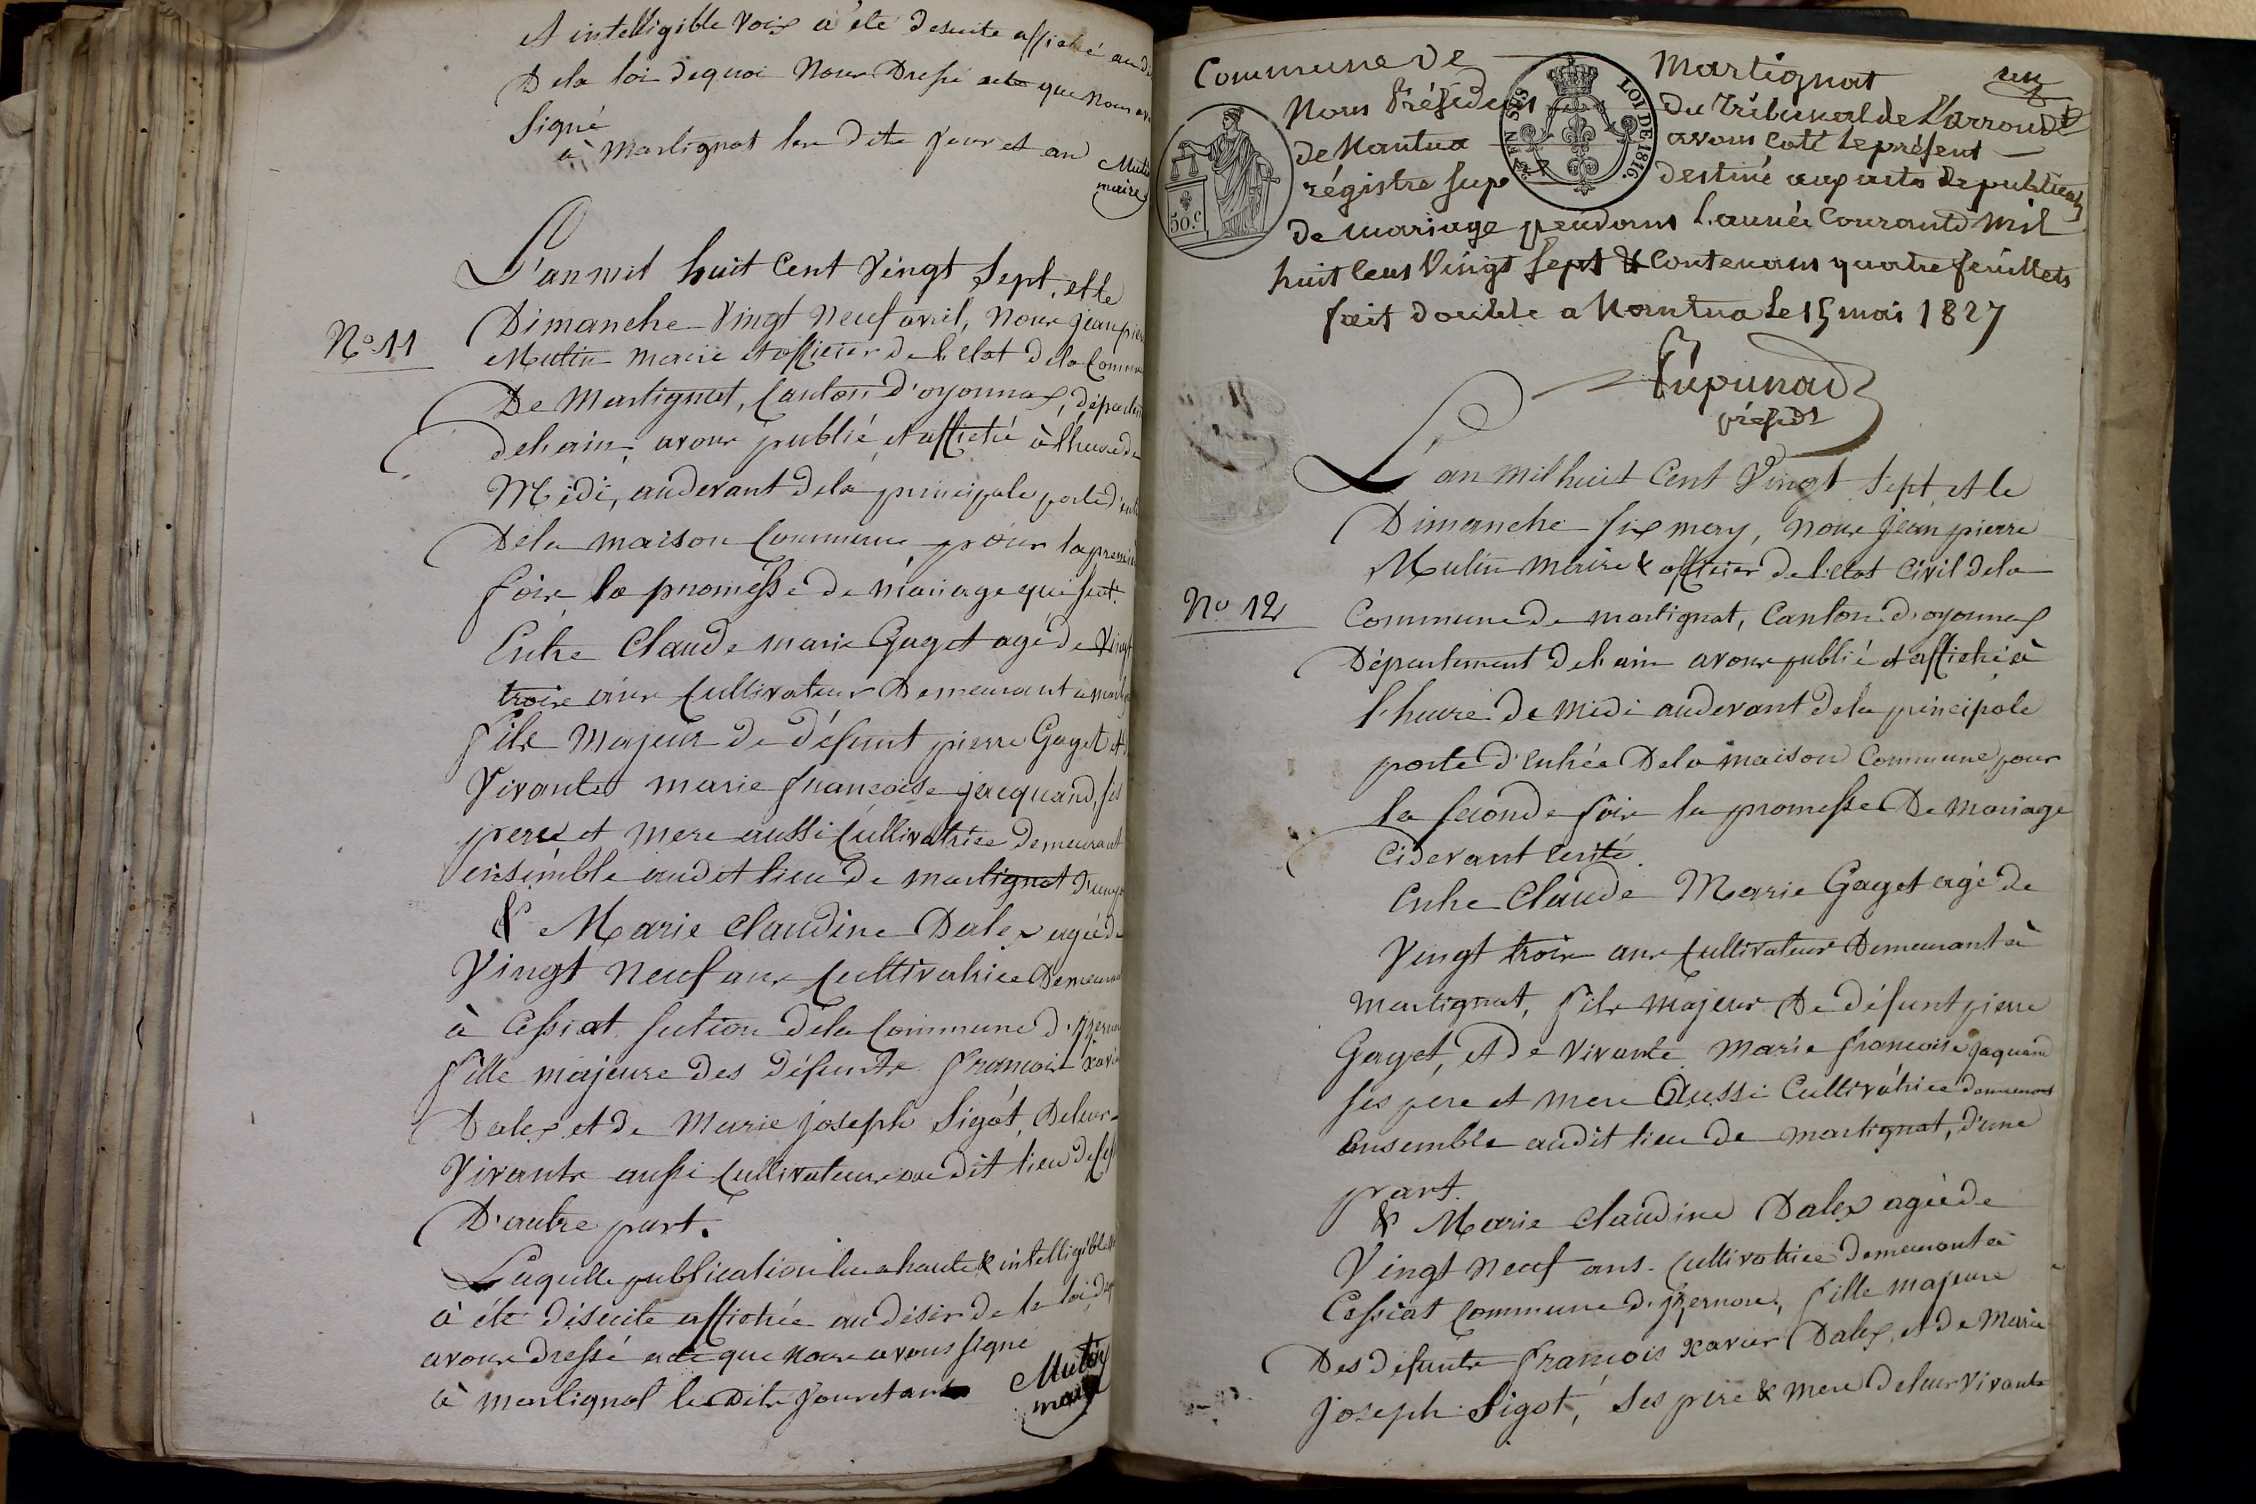 et intelligible voix a été desuite affiché au
De la loi dequoi Nous Dressé acte que nous
signé
à Martignat les dits jour et an
Mutin
maire
L'an mil huit Cent Vingt Sept, et le
Dimanche Vingt Neuf avril, Nous jean pierre
No 11
Mutin maire et officier de l'etat de la Commune
De Martignat, Canton d'oyonnax, départ
delain, avons publié et affiché à l'heure de
Midi, audevant dela principale porte d'
Dela maison Commune pour la premiere
fois, la promesse de mariage qui suit.
Entre Claude marie Gaget agé de Vingt
trois ans Cultivateur Demeurant a
fils Majeur de défunt pierre Gaget et
Vivante marie françoise jacquand, ses
pere et mere aussi Cultivatrice demeurant
ensemble audit lieu de martignat d'une
& Marie Claudine Dalex agée de
Vingt Neuf ans Cultivatrice Demeurant
à Cessiat section dela Commune d'Izernore
fille majeure des défunts françois xavier
Dalex et de Marie joseph Sigot, Deleur
Vivants aussi Cultivateurs au dit lieu de
D'autre part.
Laquelle publication lue a haute & intelligible
à été desuite affichée au désir de la loi
avons dressé acte que nous avons signé
à martignat les Dits jour et an
Mutin
maire
Commune de Martignat
un
Nous Président du Tribunal de L'arrondt
de Nantua avons coté le présent
régistre sup destiné aux actes de publication
50.c
TIMB. SES LOI DE 1816.
de mariage pendant l'année Courante mil
huit Cent Vingt Sept & Contenant quatre feuillets
fait double a Nantua le 15 mai 1827
présidt
L'an mil huit Cent Vingt Sept et le
Dimanche six may, Nous jean pierre
Mutin Maire & officier de l'etat Civil dela
No 12
Commune de martignat, Canton d'oyonnax
Département delain avons publié et affiché à
l'heure de Midi audevant dela principale
porte d'entrée Dela maison Commune pour
la seconde fois la promesse De mariage
Cidevant Citée.
Entre Claude Marie Gaget agé de
Vingt trois ans Cultivateur Demeurant à
Martignat, fils majeur De défunt pierre
Gaget, et De Vivante Marie françoise jaquand
ses pere et mere Aussi Cultivatrice demeurant
Ensemble audit lieu de martignat, d'une
part.
& Marie Claudine Dalex agée de
Vingt Neuf ans. Cultivatrice demeurant à
Cessiat Commune d'Izernore, fille majeure
Des défunts françois xavier Dalex, et de Marie
Joseph Sigot, ses pere & mere deleur vivants